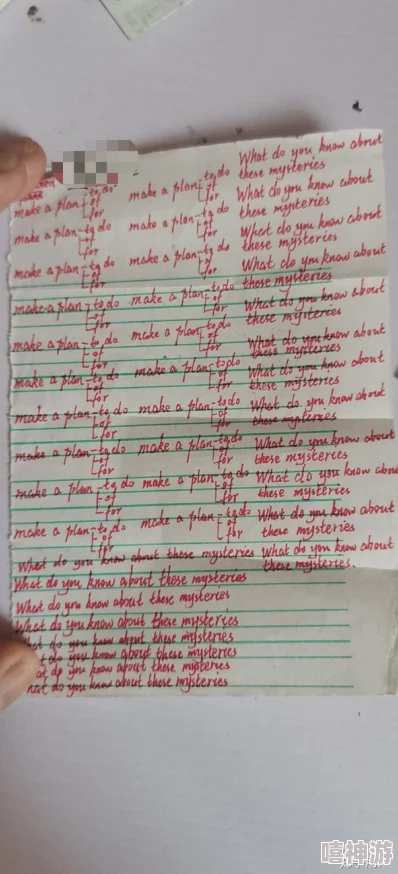 make a plan to do
of
for
make a plan to do
of
for
make a plan to do
of
for
make a plan to do
of
for
make a plan to do
of
for
make a plan to do
of
for
make a plan to do
of
for
make a plan to do
of
for
make a plan to do
of
for
make a plan to do
of
for
make a plan to do
of
for
make a plan to do
of
for
make a plan to do
of
for
make a plan to do
of
for
make a plan to do
of
for
make a plan to do
of
for
make a plan to do
of
for
make a plan to do
of
for
make a plan to do
of
for
make a plan to do
of
for
What do you know about
these mysteries
What do you know about
these mysteries
What do you know about
these mysteries
What do you know about
these mysteries
What do you know about
these mysteries
What do you know about
these mysteries
What do you know about
these mysteries
What do you know about
these mysteries
What do you know about
these mysteries
What do you know abou
these mysteries
What do you know about
these mysteries
What do you know about
these mysteries.
What do you know about these mysteries
What do you know about these mysteries
What do you know about these mysteries
What do you know about these mysteries
do you know about these mysteries
do you know about these mysteries
do you know about these mysteries
do you know about these mysteries
嘻神游